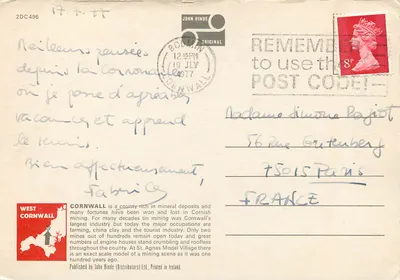 2DC496
17.7.77
JOHN HINDE
ORIGINAL
BODMIN
12 15 PM
19 JLY
1977
CORNWALL
REMEMBER
to use the
POST CODE!
8P
Meilleures pensées
depuis la Cornouaille
où je passe d'agréables
vacances et apprend
le tennis.
Bien affectueusement,
Madame Simone
56 rue Gutenberg
75015 Paris
FRANCE
WEST
CORNWALL
CORNWALL is a county rich in mineral deposits and
many fortunes have been won and lost in Cornish
mining. For many decades tin mining was Cornwall's
largest industry but today the major occupations are
farming, china clay and the tourist industry. Only two
mines out of hundreds remain open today and great
numbers of engine houses stand crumbling and roofless
throughout the county. At St. Agnes Model Village there
is an exact scale model of a mining scene as it was one
hundred years ago.
Published by John Hinde (Distributors) Ltd. Printed in Ireland.